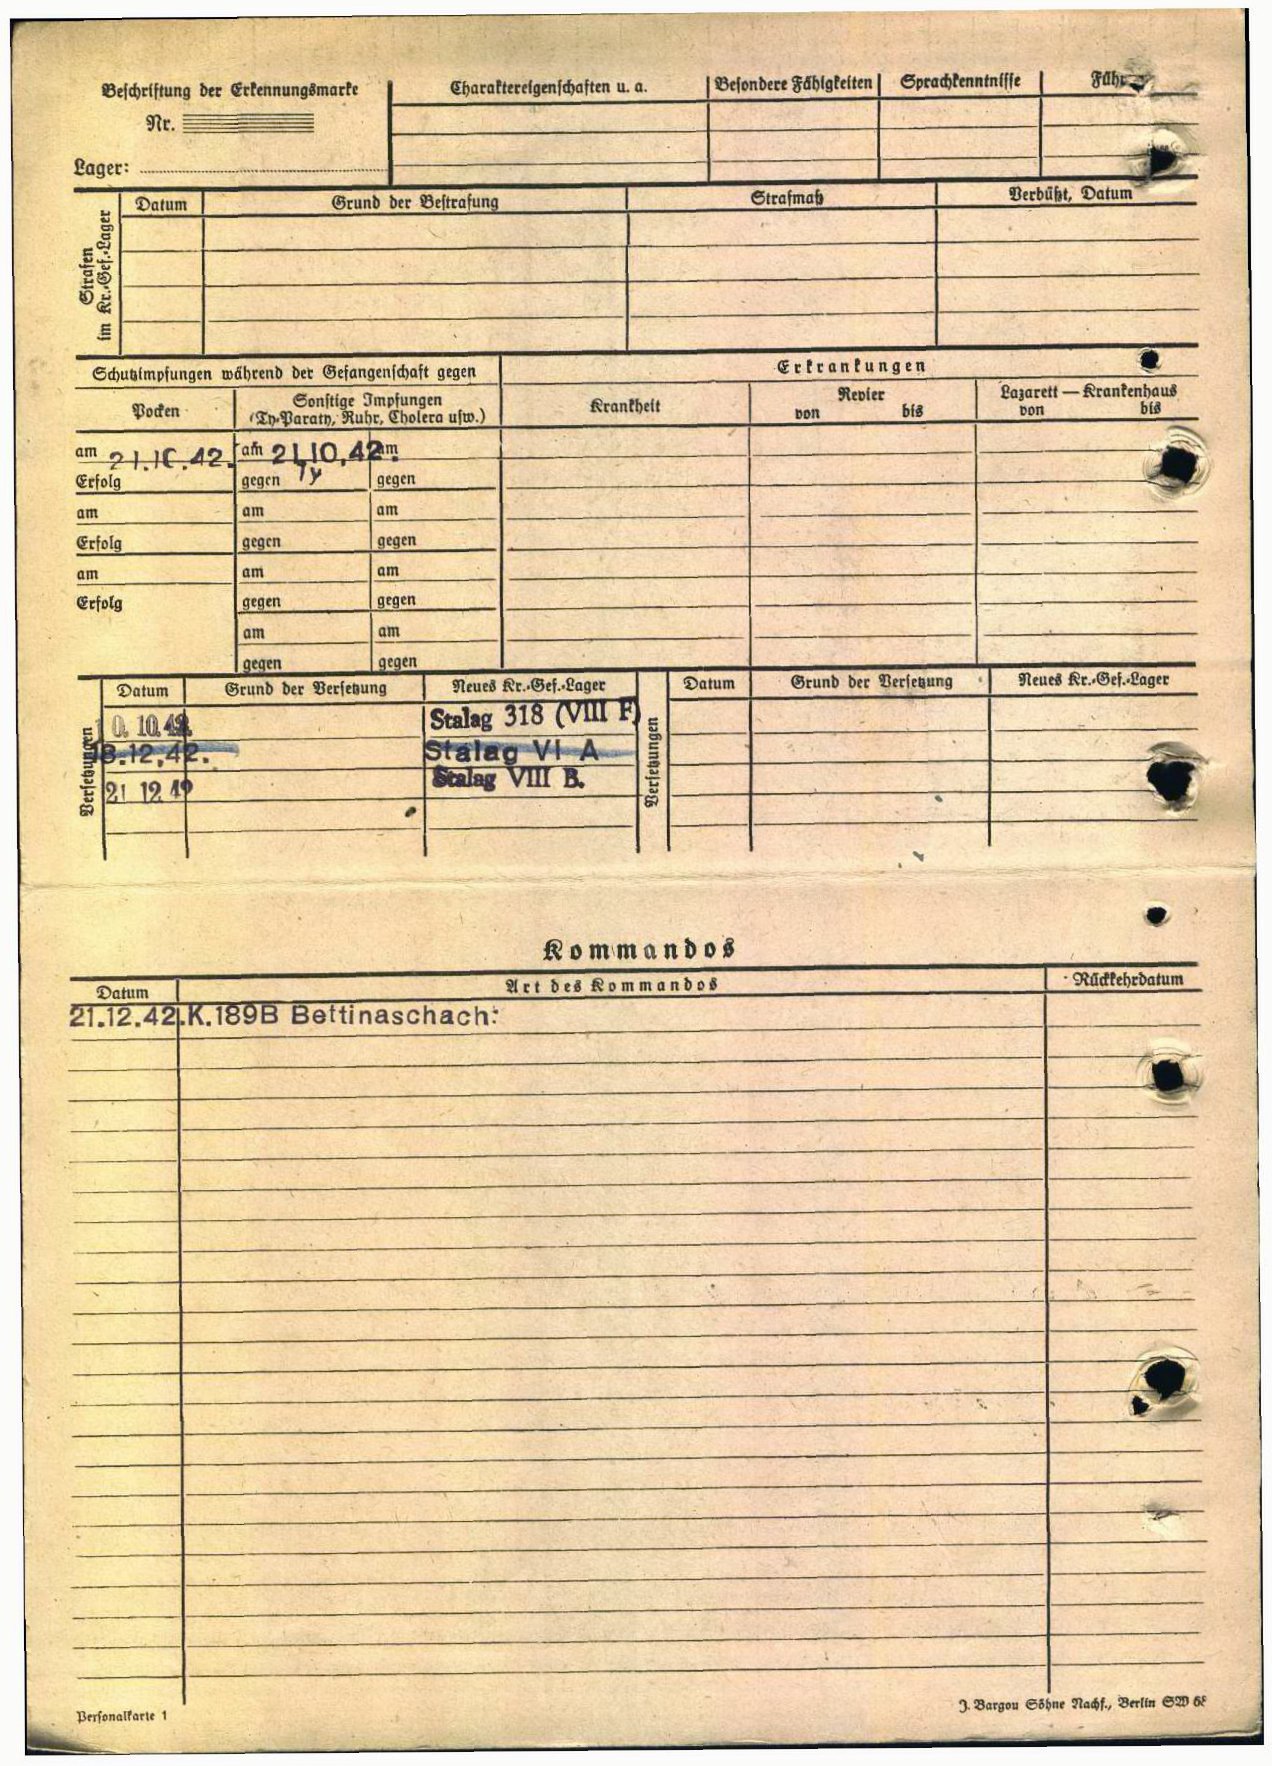 Beschriftung der Erkennungsmarke
Nr.
Lager:
Charaktereigenschaften u. a.
Besondere Fähigkeiten
Sprachkenntnisse
Strafen
im Kr.-Gef.-Lager
Datum
Grund der Bestrafung
Strafmaß
Verbüßt, Datum
Schutzimpfungen während der Gefangenschaft gegen
Erkrankungen
Pocken
Sonstige Impfungen
(Ty-Paraty, Ruhr, Cholera usw.)
Krankheit
Revier
von bis
Lazarett — Krankenhaus
von bis
am 21.10.42. am 21.10.42. am
Erfolg gegen Ty gegen
am am am
Erfolg gegen gegen
am am am
Erfolg gegen gegen
am am
gegen gegen
Versetzungen
Datum Grund der Versetzung Neues Kr.-Gef.-Lager
Versetzungen
Datum Grund der Versetzung Neues Kr.-Gef.-Lager
10. 10. 42. Stalag 318 (VIII F)
18.12.42. Stalag VI A
21 12 42 Stalag VIII B.
Kommandos
Datum Art des Kommandos Rückkehrdatum
21.12.42. K.189B Bettinaschach:
Personalkarte 1
J. Bargou Söhne Nachf., Berlin SW 68